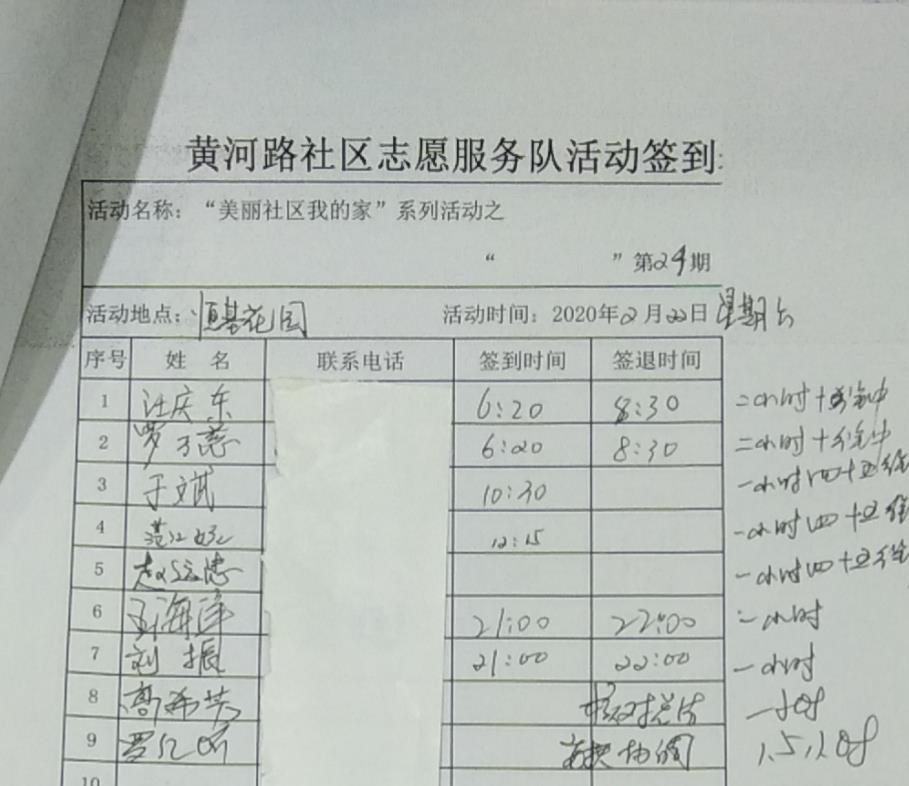 黄河路社区志愿服务队活动签到
活动名称：“美丽社区我的家”系列活动之
“ ”第24期
活动地点：恒基花园 活动时间：2020年2月22日 星期六
序号 姓名 联系电话 签到时间 签退时间
1 汪庆东 6:20 8:30 二小时十分钟
2 罗万慈 6:20 8:30 二小时十分钟
3 于文斌 10:30 一小时四十五分
4 12:15 一小时四十五分
5 一小时四十五分
6 王海洋 21:00 22:00 一小时
7 刘振 21:00 22:00 一小时
8 高希芳
9 罗 1.5小时
10